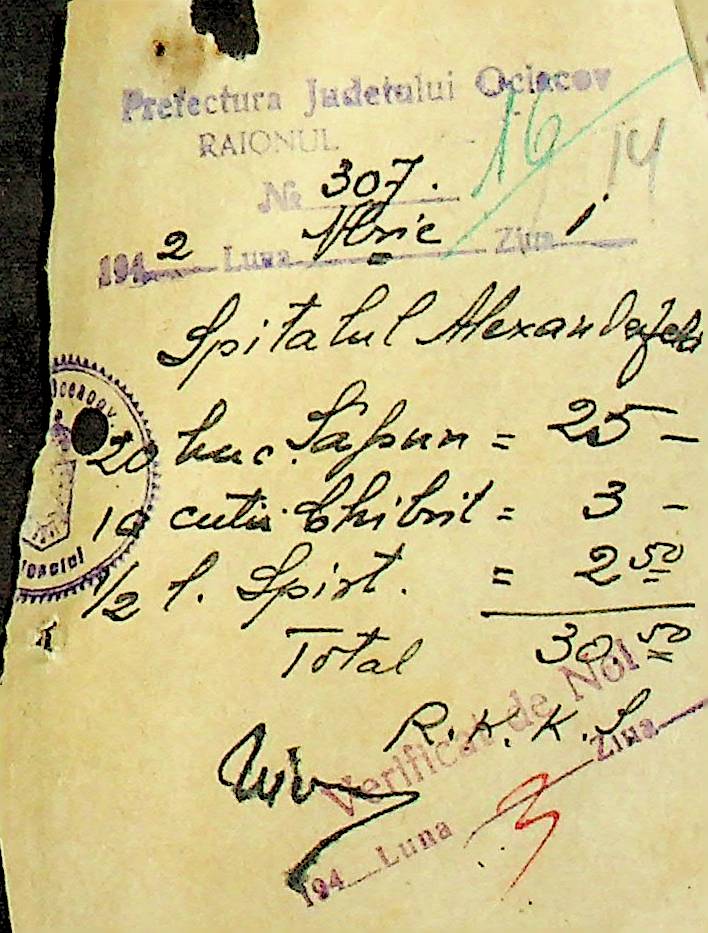 Prefectura Judetului Ociacov
RAIONUL
16
14
№ 307.
1942 Luna Ziua 1
Spitalul Alexanderfeld
20 buc. Sapun = 25 —
10 cutii Chibrit = 3 —
1/2 l. Spirt. = 2 50
Total 30 50
R. K. K. S
Verificat de Noi
194 Luna Ziua